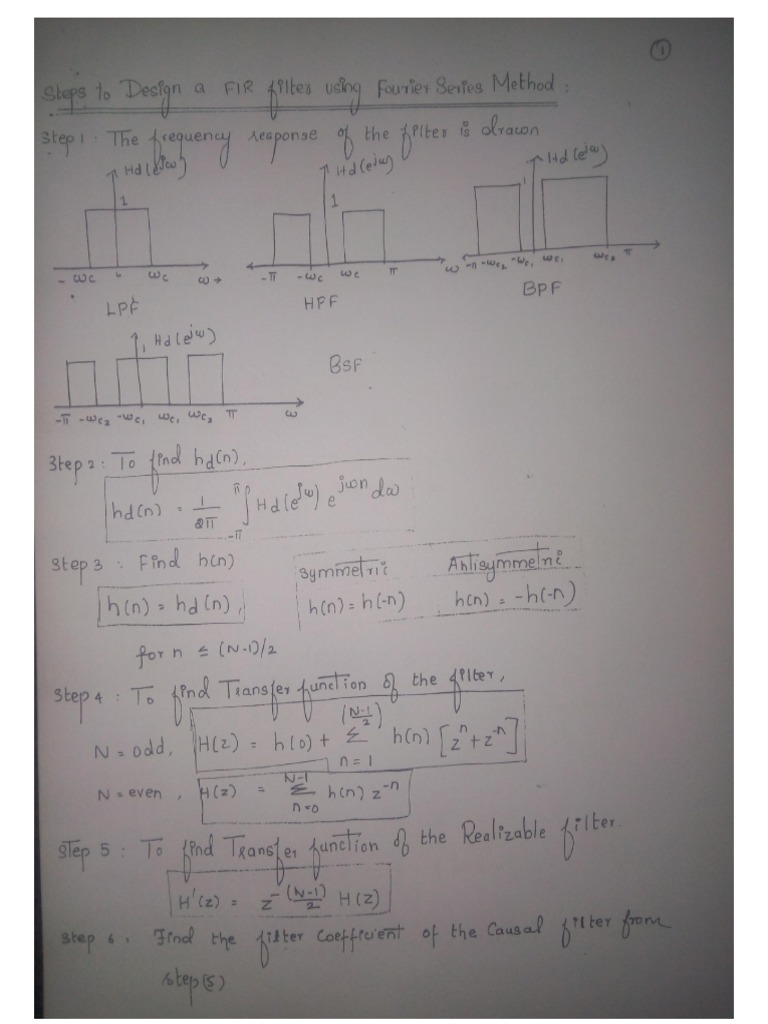 1
Steps to Design a FIR filter using Fourier Series Method :
Step 1 : The frequency response of the filter is drawn
Hd(e^jω) Hd(e^jω) Hd(e^jω)
1 1 1
-ωc 0 ωc ω→ -π -ωc ωc π ω -π -ωc2 -ωc1 ωc1 ωc2 π
LPF HPF BPF
Hd(e^jω)
1
BSF
-π -ωc2 -ωc1 ωc1 ωc2 π ω
Step 2 : To find hd(n),
hd(n) = 1/2π ∫_{-π}^{π} Hd(e^jω) e^jωn dω
Step 3 : Find h(n) Symmetric Antisymmetric
h(n) = hd(n), h(n) = h(-n) h(n) = -h(-n)
for n ≤ (N-1)/2
Step 4 : To find Transfer function of the filter,
N = odd, H(z) = h(0) + Σ_{n=1}^{(N-1/2)} h(n) [z^n + z^-n]
N = even, H(z) = Σ_{n=0}^{N-1} h(n) z^-n
Step 5 : To find Transfer function of the Realizable filter.
H'(z) = z^-(N-1)/2 H(z)
Step 6 . Find the filter coefficient of the Causal filter from
step(5)